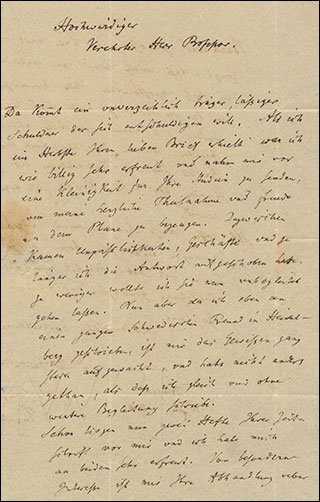 Hochwürdiger
Verehrter Herr Professor.
Da kommt ein unverzeihlich träger lässiger
Schuldner der sich entschuldigen will. Als ich
im Herbste Ihren lieben Brief erhielt war ich
wie billig sehr erfreut und nahm mir vor
eine Kleinigkeit für Ihre Studien zu senden,
um meine herzliche Theilnahme und Freude
an dem Plane zu bezeugen. Inzwischen
kamen Unpäßlichkeiten, Geschäfte und je
länger ich die Antwort aufgeschoben habe.
je weniger wollte ich sie nun unbegleitet
gehen lassen. Nun aber da ich eben an
einen jungen Freund in Heidel-
berg geschrieben, ist mir das Gewissen ganz
aufgewacht, und habs nicht anders
gethan, als daß ich gleich und ohne
weitere Begleitung schriebe.
Schon liegen nun zwei Hefte Ihrer Zeit-
schrift vor mir und ich habe mich
an beiden sehr erfreut. Von besonderm
Interesse ist mir Ihre Abhandlung ueber